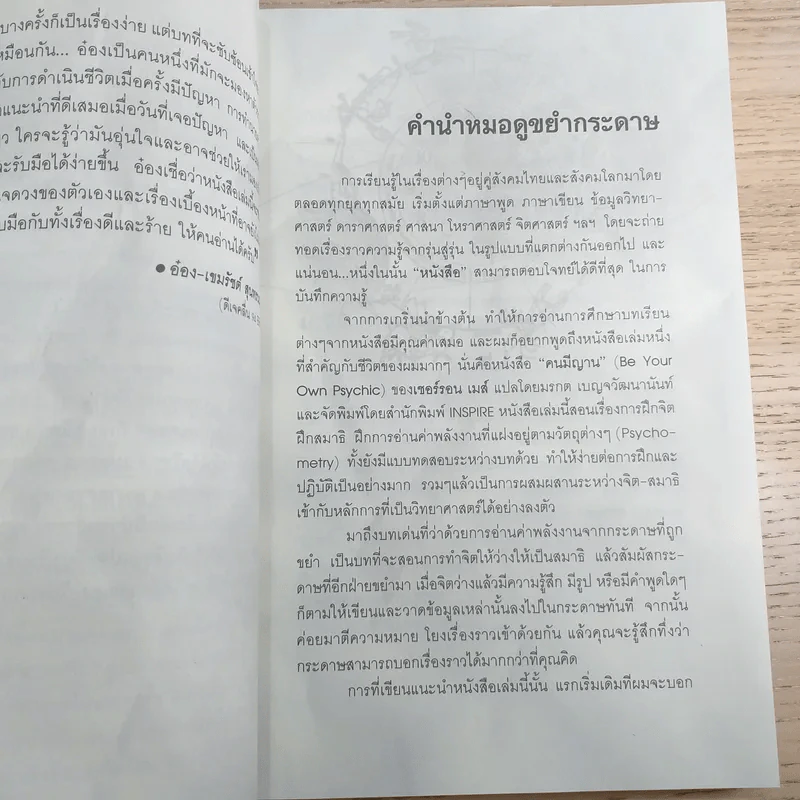 บางครั้งก็เป็นเรื่องง่าย แต่บทที่จะซับซ้อน
เหมือนกัน... อ๋องเป็นคนหนึ่งที่มักจะมอง
กับการดำเนินชีวิตเมื่อครั้งมีปัญหา
แนะนำที่ดีเสมอเมื่อวันที่เจอปัญหา
ใครจะรู้ว่ามันอุ่นใจและอาจช่วยให้เรา
จะรับมือได้ง่ายขึ้น อ๋องเชื่อว่าหนังสือเล่มนี้
ดวงของตัวเองและเรื่องเบื้องหน้าที่อาจ
มือกับทั้งเรื่องดีและร้าย ให้คนอ่านได้ครับ
● อ๋อง-เขมรัชต์
(ดีเจคลื่น
คำนำหมอดูขยำกระดาษ
การเรียนรู้ในเรื่องต่างๆอยู่คู่สังคมไทยและสังคมโลกมาโดย
ตลอดทุกยุคทุกสมัย เริ่มตั้งแต่ภาษาพูด ภาษาเขียน ข้อมูลวิทยา-
ศาสตร์ ดาราศาสตร์ ศาสนา โหราศาสตร์ จิตศาสตร์ ฯลฯ โดยจะถ่าย
ทอดเรื่องราวความรู้จากรุ่นสู่รุ่น ในรูปแบบที่แตกต่างกันออกไป และ
แน่นอน...หนึ่งในนั้น “หนังสือ” สามารถตอบโจทย์ได้ดีที่สุด ในการ
บันทึกความรู้
จากการเกริ่นนำข้างต้น ทำให้การอ่านการศึกษาบทเรียน
ต่างๆจากหนังสือมีคุณค่าเสมอ และผมก็อยากพูดถึงหนังสือเล่มหนึ่ง
ที่สำคัญกับชีวิตของผมมากๆ นั่นคือหนังสือ “คนมีญาน” (Be Your
Own Psychic) ของเชอร์รอน เมส์ แปลโดยมรกต เบญจวัฒนานันท์
และจัดพิมพ์โดยสำนักพิมพ์ INSPIRE หนังสือเล่มนี้สอนเรื่องการฝึกจิต
ฝึกสมาธิ ฝึกการอ่านค่าพลังงานที่แฝงอยู่ตามวัตถุต่างๆ (Psycho-
metry) ทั้งยังมีแบบทดสอบระหว่างบทด้วย ทำให้ง่ายต่อการฝึกและ
ปฏิบัติเป็นอย่างมาก รวมๆแล้วเป็นการผสมผสานระหว่างจิต-สมาธิ
เข้ากับหลักการที่เป็นวิทยาศาสตร์ได้อย่างลงตัว
มาถึงบทเด่นที่ว่าด้วยการอ่านค่าพลังงานจากกระดาษที่ถูก
ขยำ เป็นบทที่จะสอนการทำจิตให้ว่างให้เป็นสมาธิ แล้วสัมผัสกระ-
ดาษที่อีกฝ่ายขยำมา เมื่อจิตว่างแล้วมีความรู้สึก มีรูป หรือมีคำพูดใดๆ
ก็ตามให้เขียนและวาดข้อมูลเหล่านั้นลงไปในกระดาษทันที จากนั้น
ค่อยมาตีความหมาย โยงเรื่องราวเข้าด้วยกัน แล้วคุณจะรู้สึกทึ่งว่า
กระดาษสามารถบอกเรื่องราวได้มากกว่าที่คุณคิด
การที่เขียนแนะนำหนังสือเล่มนี้นั้น แรกเริ่มเดิมทีผมจะบอก